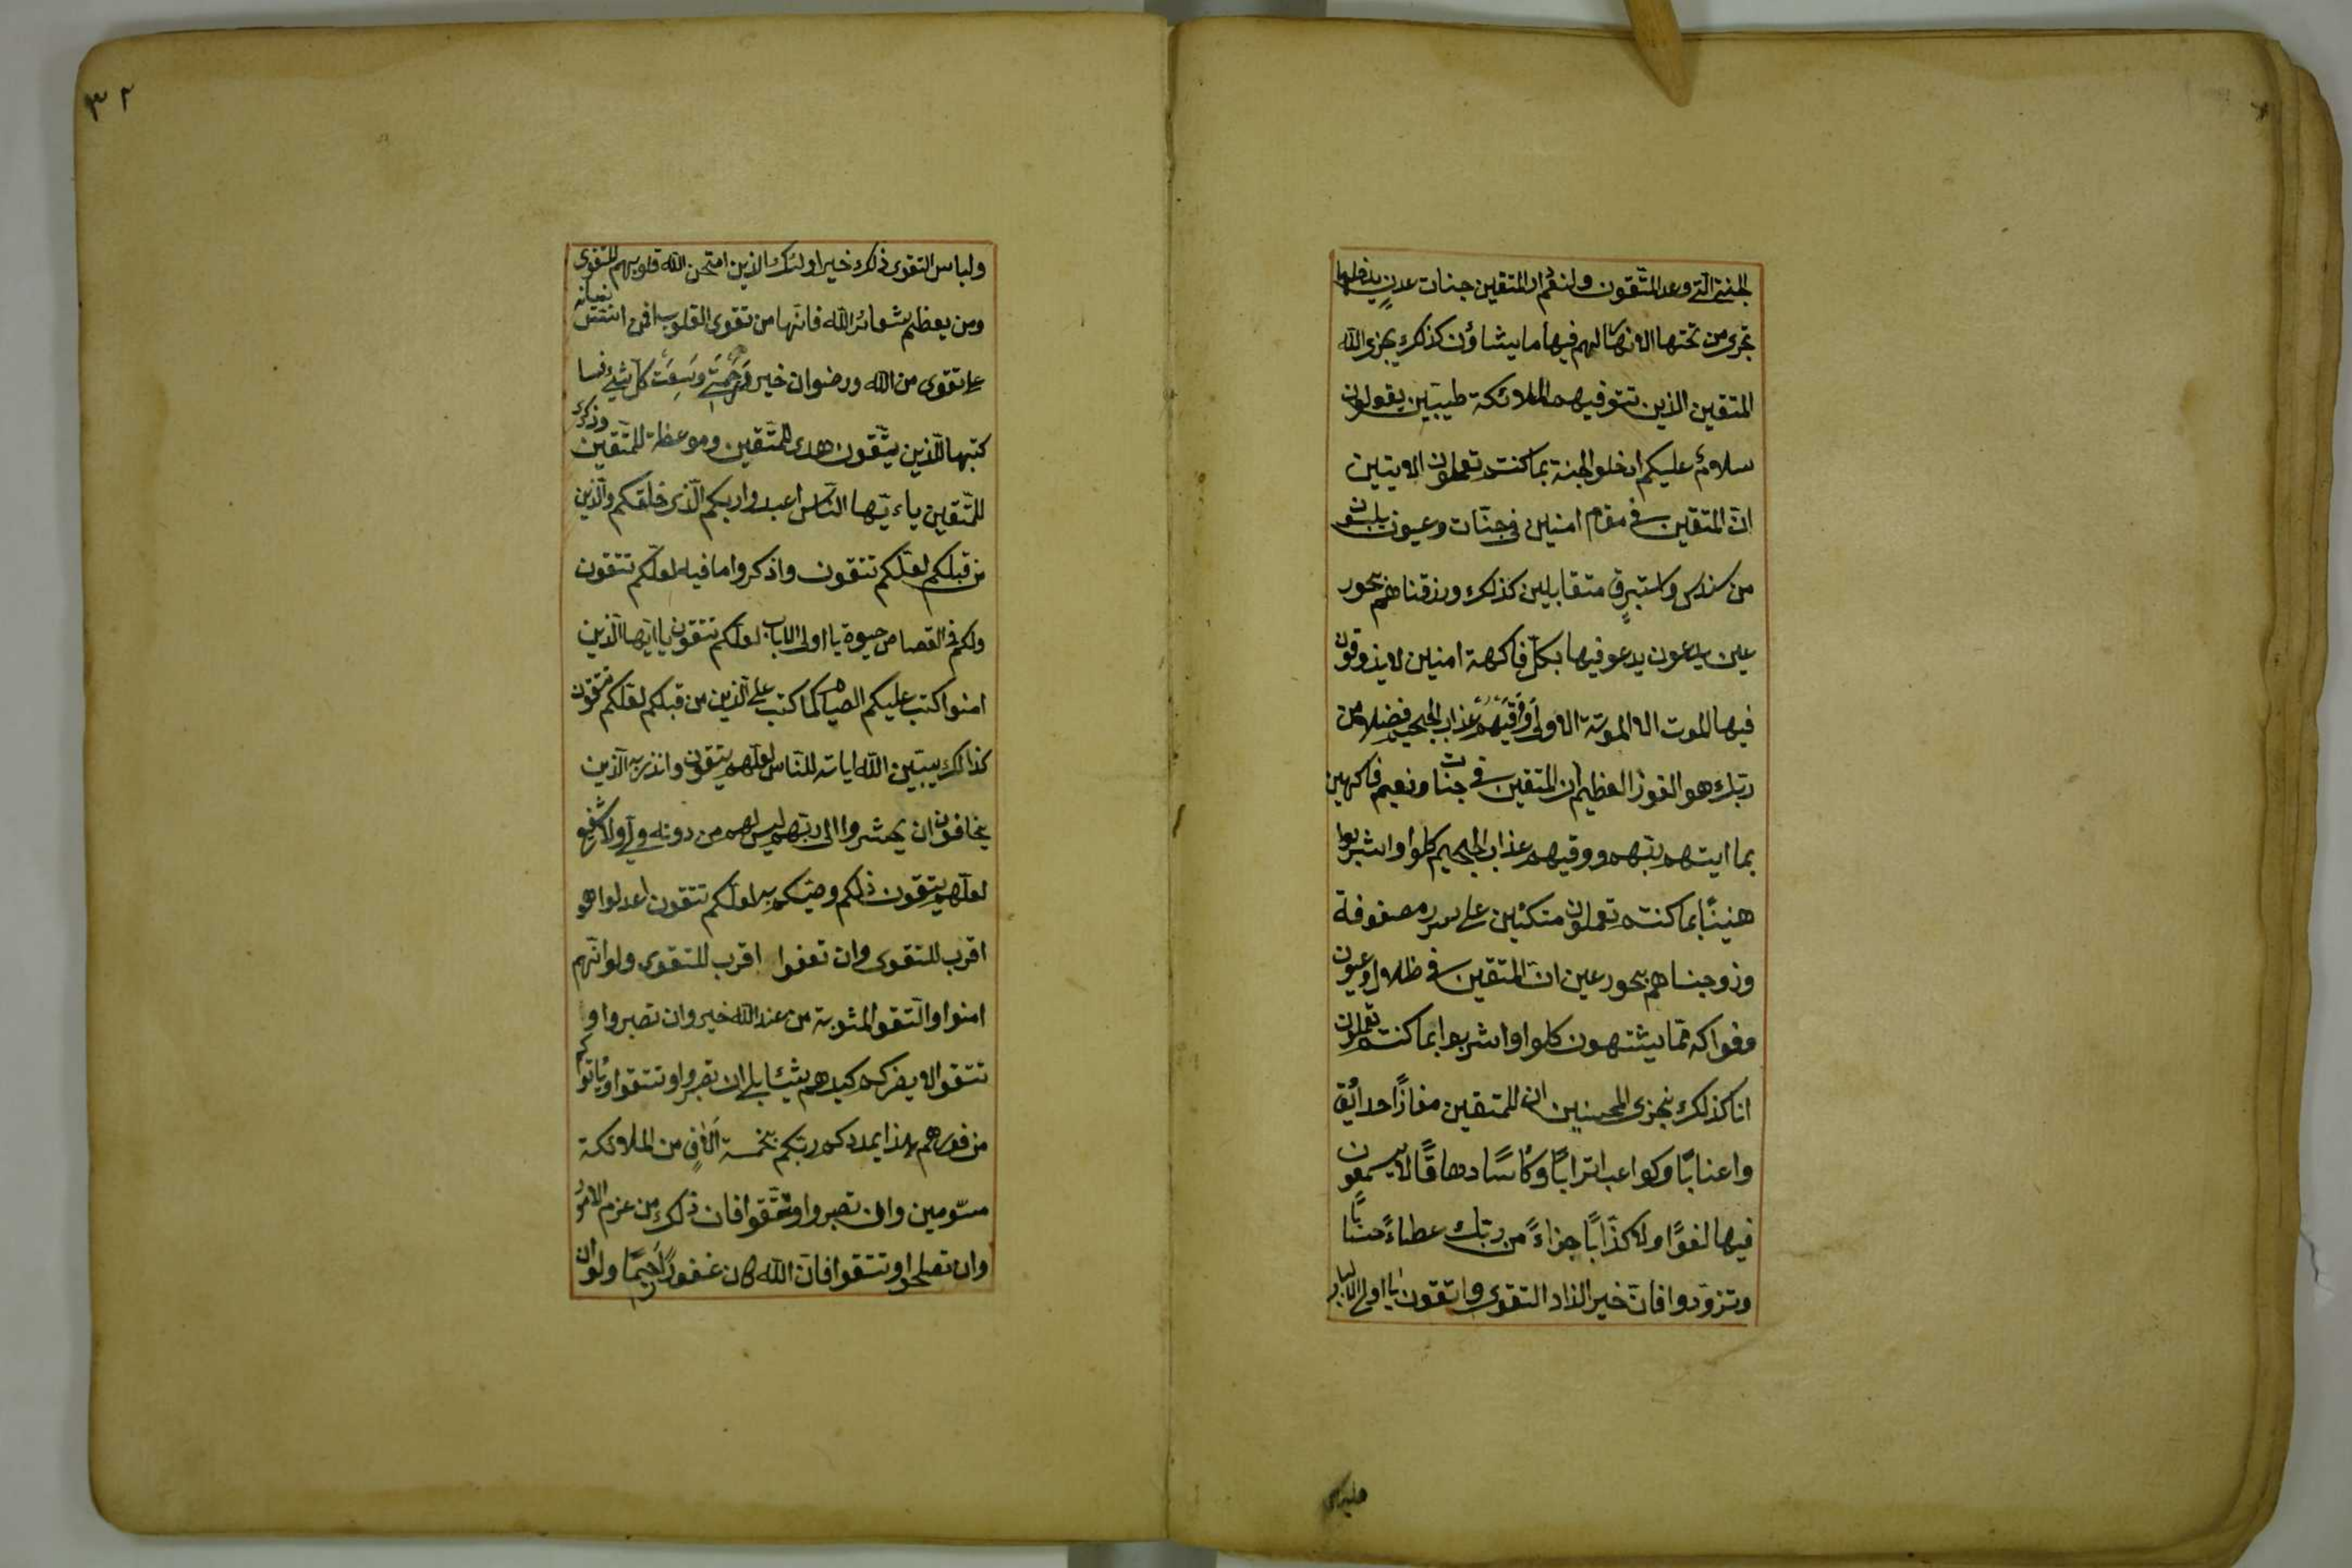 الجنة الّتي وعد المتّقون ولنعم دار المتقين جنات عدنٍ يدخلونها
تجرى من تحتها الانهار لهم فيها ما يشاؤن كذلك يجزى الله
المتقين الذين تتوفيهم الملائكة طيبين يقولون
سلامٌ عليكم ادخلو الجنة بما كنتم تعملون الايتين
انّ المتقين في مقام امنين في جنّات وعيون يلبسون
من سندس واستبرقٍ متقابلين كذلك وزقناهم بحور
عين يدعون يدعو فيها بكلّ فاكهة امنين لا يذوقون
فيها الموت الا الموتة الاولى ووقيهم عذاب الجحيم فضلا من
ربّك هو الفوز العظيم ان المتقين في جنات ونعيم فاكهين
بما اتيهم ربّهم ووقيهم عذاب الجحيم كلوا واشربوا
هنيئًا بما كنتم تعملون متكئين على سرر مصفوفة
وزوجناهم بحور عين انّ المتقين في ظلال وعيون
وفواكه ممّا يشتهون كلوا واشربوا بما كنتم تعملون
انا كذلك نجزى المحسنين ان للمتقين مفازًا حدائق
واعنابًا وكواعب اترابًا وكأسًا دهاقًا لا يسمعون
فيها لغوًا ولا كذّابًا جزاءً من ربّك عطاءً حسابًا
وتزوّدوا فانّ خير الزاد التقوى واتقون يا اولى الالباب
٣٢
ولباس التقوى ذلك خير اولئك الذين امتحن الله قلوبهم للتقوى
ومن يعظم شعائر الله فانّها من تقوى القلوب افمن اسّس بنيانه
على تقوى من الله ورضوان خير ورحمتي وسعت كلّ شيء فسا
كتبها للّذين يتّقون هدى للمتّقين وموعظة للمتّقين وذكرى
للمتّقين ياءيّها النّاس اعبدوا ربكم الّذى خلقكم والّذين
من قبلكم لعلّكم تتقون واذكروا ما فيه لعلّكم تتقون
ولكم في القصاص حيوة يا اولى الالباب لعلّكم تتقون يا ايّها الّذين
امنوا كتب عليكم الصيام كما كتب على الّذين من قبلكم لعلّكم تتقون
كذالك يبيّن الله اياته للنّاس لعلّهم يتّقون وانذر به الّذين
يخافون ان يحشروا الى ربّهم ليس لهم من دونه ولي ولا شفيع
لعلّهم يتقون ذلكم وصّيكم به لعلّكم تتقون اعدلوا هو
اقرب للتقوى وان تعفوا اقرب للتقوى ولو انّهم
امنوا واتّقو المثوبة من عند الله خير وان تصبروا و
تتقوا لا يضركم كيدهم شيئا بلى ان تصبروا وتتقوا ويأتوكم
من فورهم هذا يمددكم ربّكم بخمسة الافٍ من الملائكة
مسوّمين وان تصبروا وتتّقوا فان ذلك من عزم الامور
وان تصلحوا وتتقوا فانّ الله كان غفورًا رحيمًا ولو ان